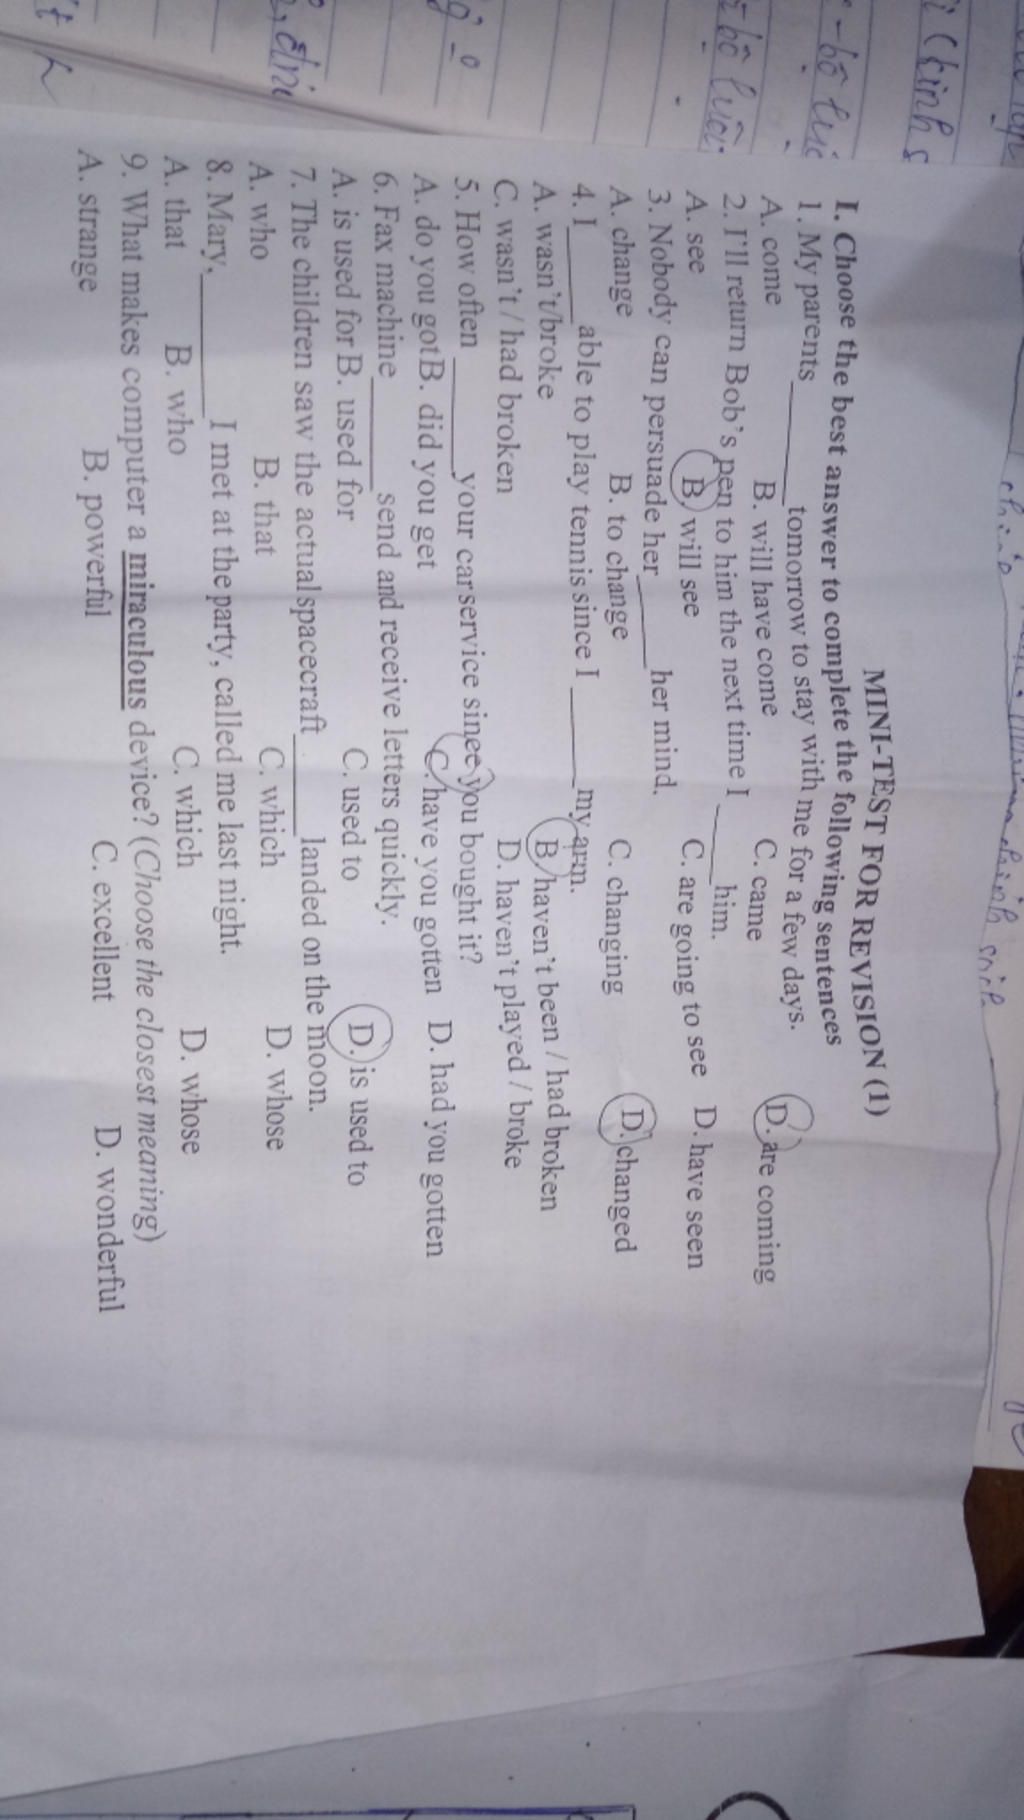 MINI-TEST FOR REVISION (1)
I. Choose the best answer to complete the following sentences
1. My parents ______ tomorrow to stay with me for a few days.
A. come B. will have come C. came D. are coming
2. I'll return Bob's pen to him the next time I ______ him.
A. see B. will see C. are going to see D. have seen
3. Nobody can persuade her ______ her mind.
A. change B. to change C. changing D. changed
4. I ______ able to play tennis since I ______ my arm.
A. wasn't/broke B. haven't been / had broken
C. wasn't / had broken D. haven't played / broke
5. How often ______ your car service since you bought it?
A. do you got B. did you get C. have you gotten D. had you gotten
6. Fax machine ______ send and receive letters quickly.
A. is used for B. used for C. used to D. is used to
7. The children saw the actual spacecraft ______ landed on the moon.
A. who B. that C. which D. whose
8. Mary, ______ I met at the party, called me last night.
A. that B. who C. which D. whose
9. What makes computer a miraculous device? (Choose the closest meaning)
A. strange B. powerful C. excellent D. wonderful